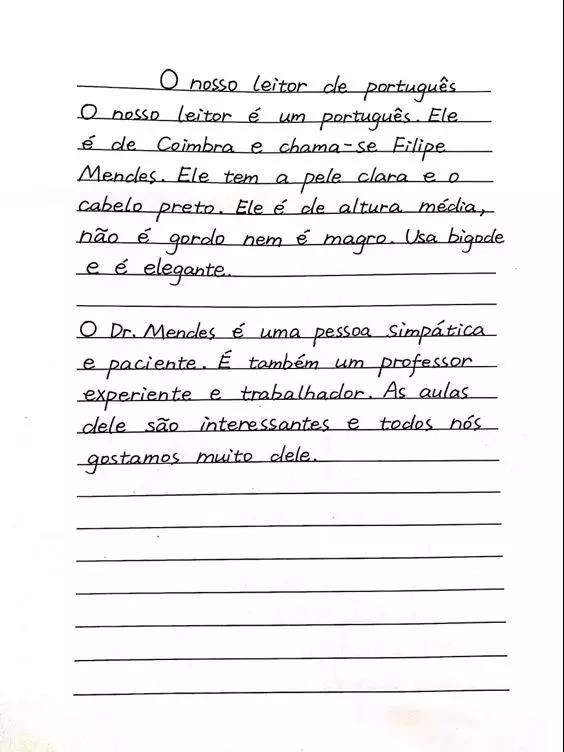 O nosso leitor de português
O nosso leitor é um português. Ele
é de Coimbra e chama-se Filipe
Mendes. Ele tem a pele clara e o
cabelo preto. Ele é de altura média,
não é gordo nem é magro. Usa bigode
e é elegante.
O Dr. Mendes é uma pessoa simpática
e paciente. É também um professor
experiente e trabalhador. As aulas
dele são interessantes e todos nós
gostamos muito dele.